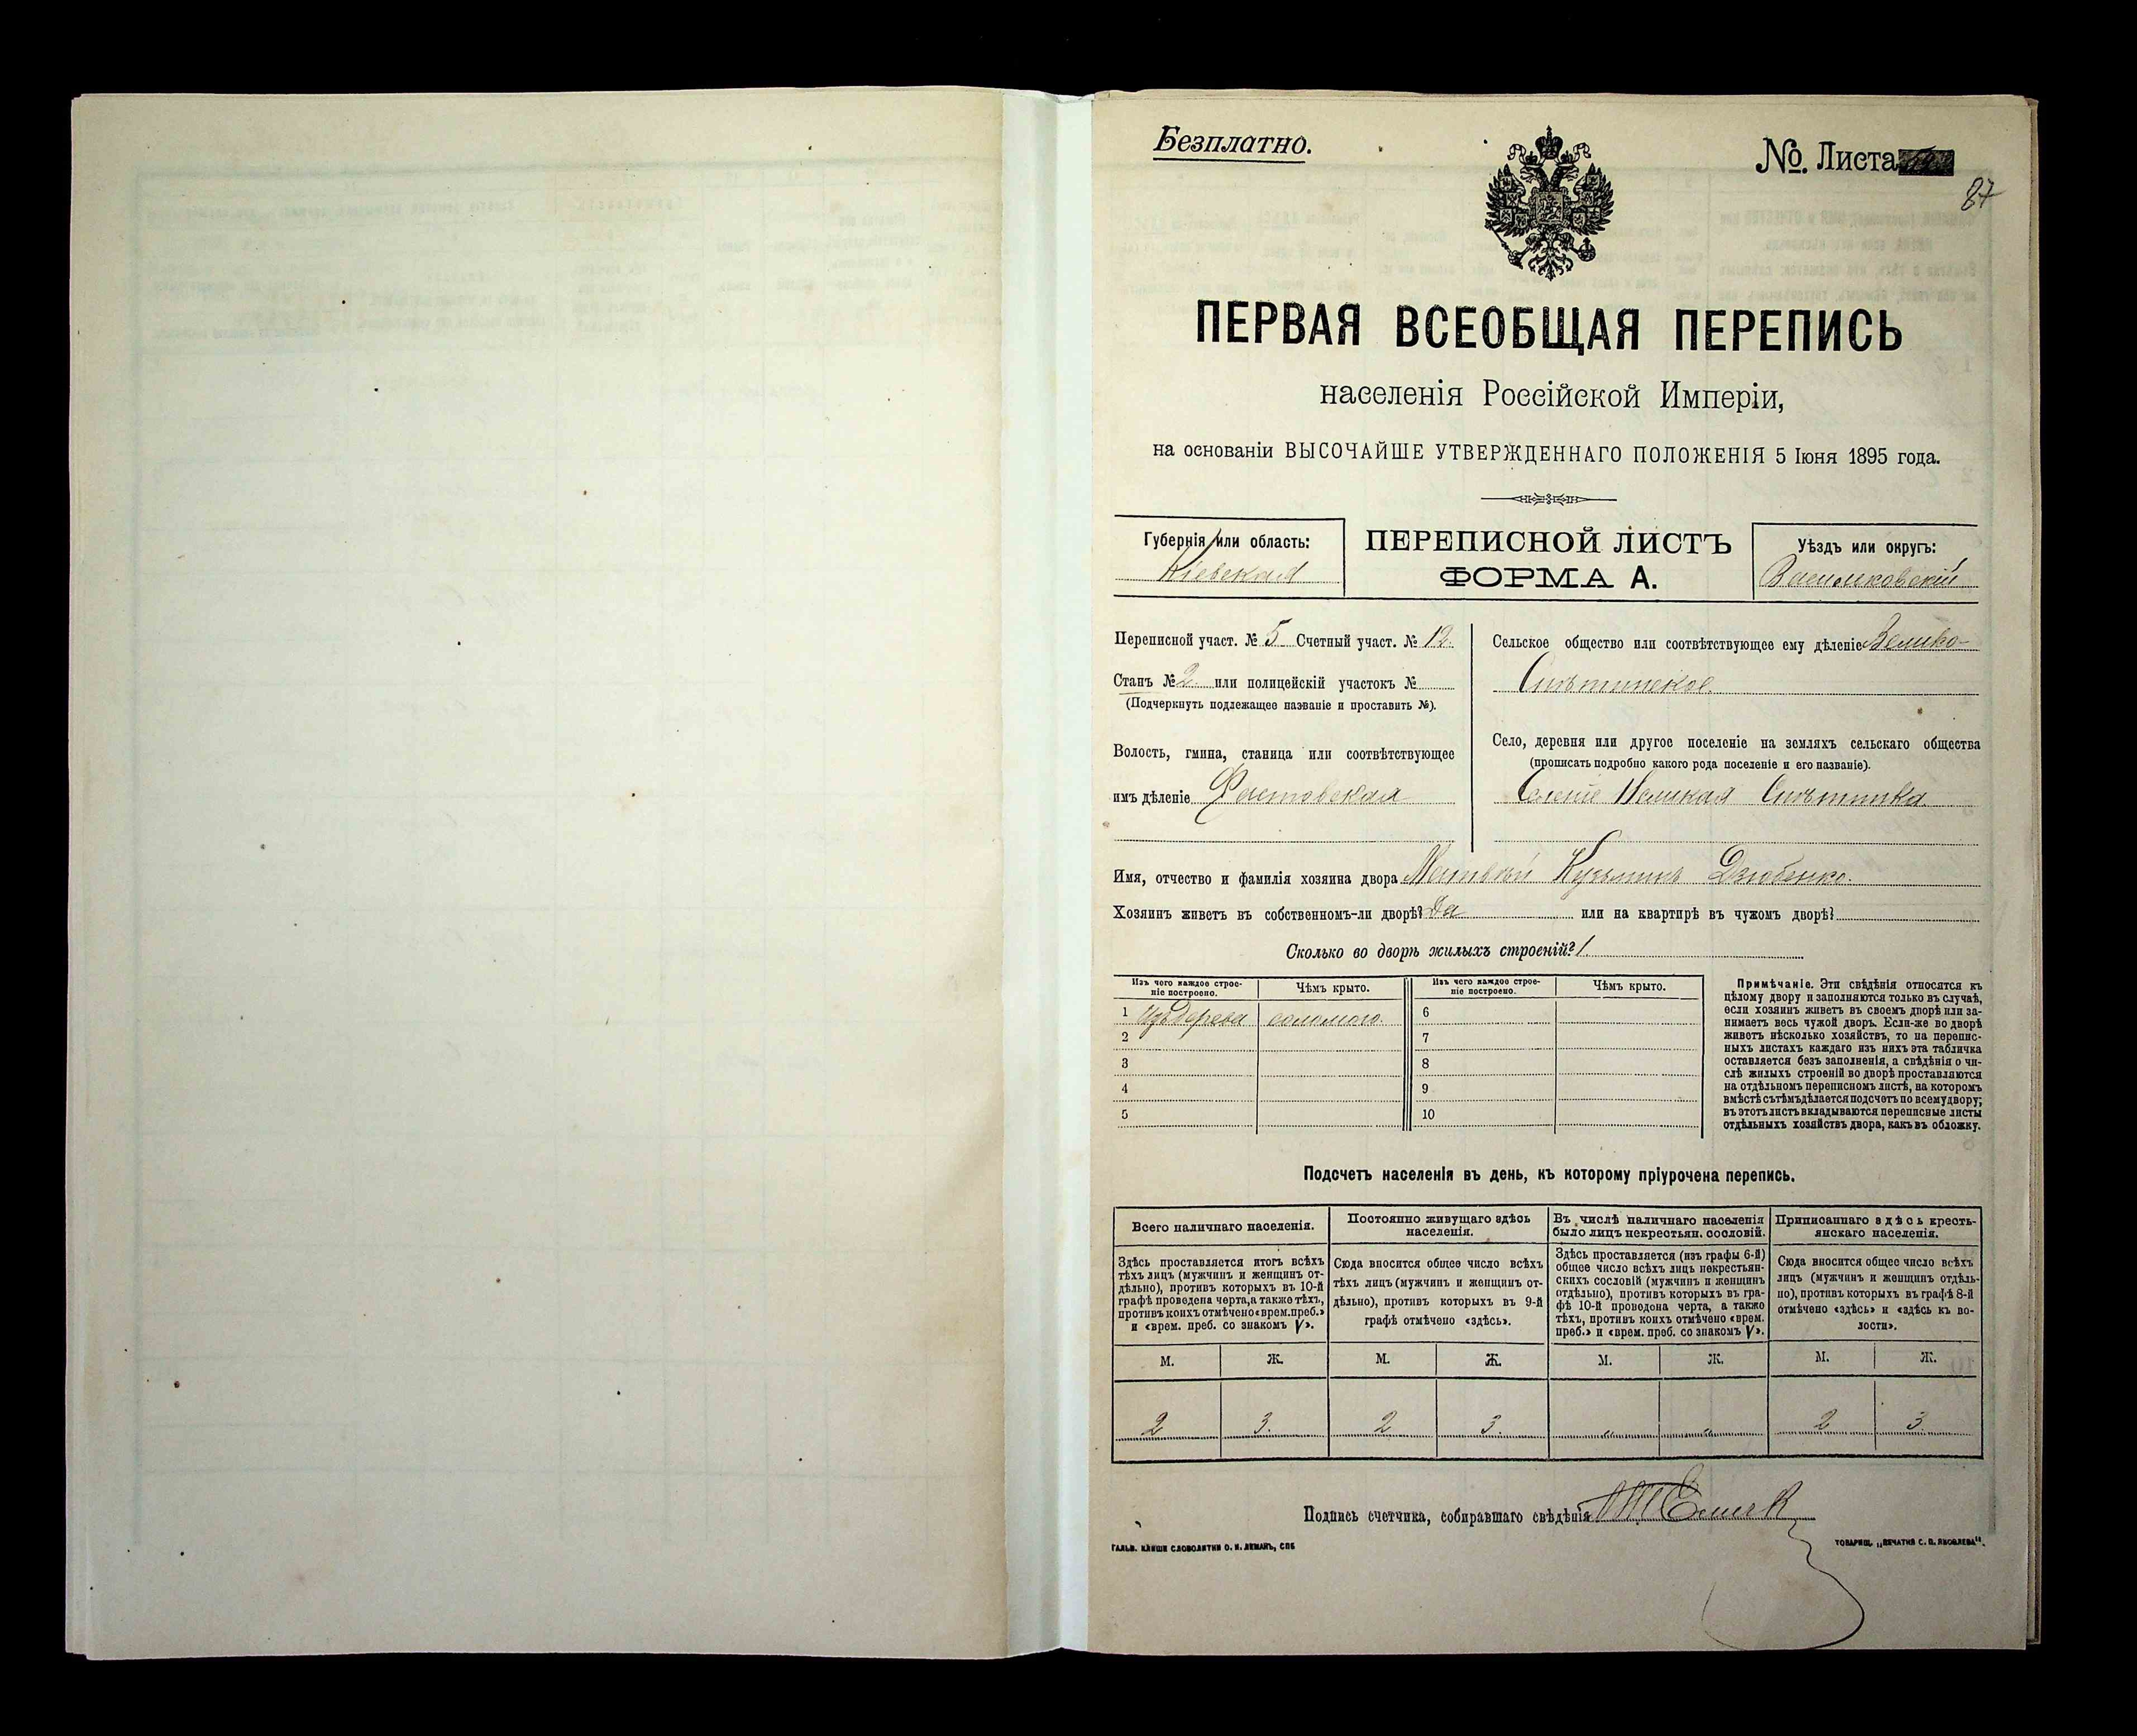 Безплатно.
№. Листа
87
ПЕРВАЯ ВСЕОБЩАЯ ПЕРЕПИСЬ
населенія Россійской Имперіи,
на основаніи ВЫСОЧАЙШЕ УТВЕРЖДЕННАГО ПОЛОЖЕНІЯ 5 Іюня 1895 года.
Губернія или область:
Кіевская
ПЕРЕПИСНОЙ ЛИСТЪ
ФОРМА А.
Уѣздъ или округъ:
Васильковскій
Переписной участ. № 5 Счетный участ. № 12.
Станъ № 2. или полицейскій участокъ №
(Подчеркнуть подлежащее названіе и проставить №).
Волость, гмина, станица или соотвѣтствующее
имъ дѣленіе Фастовская
Сельское общество или соотвѣтствующее ему дѣленіе Велико-
Снѣтинское.
Село, деревня или другое поселеніе на земляхъ сельскаго общества
(прописать подробно какого рода поселеніе и его названіе).
Великая Снѣтинка
Имя, отчество и фамилія хозяина двора Матвѣй Кузьминъ Дзюбенко.
Хозяинъ живетъ въ собственномъ-ли дворѣ? Да или на квартирѣ въ чужомъ дворѣ?
Сколько во дворѣ жилыхъ строеній? 1.
Изъ чего каждое строе-
ніе построено.
Чѣмъ крыто.
Изъ чего каждое строе-
ніе построено.
Чѣмъ крыто.
1 Изъ дерева соломою. 6
2 7
3 8
4 9
5 10
Примѣчаніе. Эти свѣдѣнія относятся къ
цѣлому двору и заполняются только въ случаѣ,
если хозяинъ живетъ въ своемъ дворѣ или за-
нимаетъ весь чужой дворъ. Если-же во дворѣ
живетъ нѣсколько хозяйствъ, то на перепис-
ныхъ листахъ каждаго изъ нихъ эта табличка
оставляется безъ заполненія, а свѣдѣнія о чи-
слѣ жилыхъ строеній во дворѣ проставляются
на отдѣльномъ переписномъ листѣ, на которомъ
вмѣстѣ съ тѣмъ дѣлается подсчетъ по всему двору;
въ этотъ листъ вкладываются переписные листы
отдѣльныхъ хозяйствъ двора, какъ въ обложку.
Подсчетъ населенія въ день, къ которому пріурочена перепись.
Всего наличнаго населенія.
Здѣсь проставляется итогъ всѣхъ
тѣхъ лицъ (мужчинъ и женщинъ от-
дѣльно), противъ которыхъ въ 10-й
графѣ проведена черта, а также тѣхъ,
противъ коихъ отмѣчено «врем. преб.»
и «врем. преб. со знакомъ V».
Постоянно живущаго здѣсь
населенія.
Сюда вносится общее число всѣхъ
тѣхъ лицъ (мужчинъ и женщинъ от-
дѣльно), противъ которыхъ въ 9-й
графѣ отмѣчено «здѣсь».
Въ числѣ наличнаго населенія
было лицъ некрестьян. сословій.
Здѣсь проставляется (изъ графы 6-й)
общее число всѣхъ лицъ некрестьян-
скихъ сословій (мужчинъ и женщинъ
отдѣльно), противъ которыхъ въ гра-
фѣ 10-й проведена черта, а также
тѣхъ, противъ коихъ отмѣчено «врем.
преб.» и «врем. преб. со знакомъ V».
Приписаннаго здѣсь кресть-
янскаго населенія.
Сюда вносится общее число всѣхъ
лицъ (мужчинъ и женщинъ отдѣль-
но), противъ которыхъ въ графѣ 8-й
отмѣчено «здѣсь» и «здѣсь къ во-
лости».
М. Ж. М. Ж. М. Ж. М. Ж.
2 3. 2 3. „ „ 2 3
Подпись счетчика, собиравшаго свѣдѣнія
ГАЛЬВ. КЛИШЕ СЛОВОЛИТНИ О. И. ЛЕМАНЪ, СПБ
ТОВАРИЩ. „ПЕЧАТНЯ С. П. ЯКОВЛЕВА".